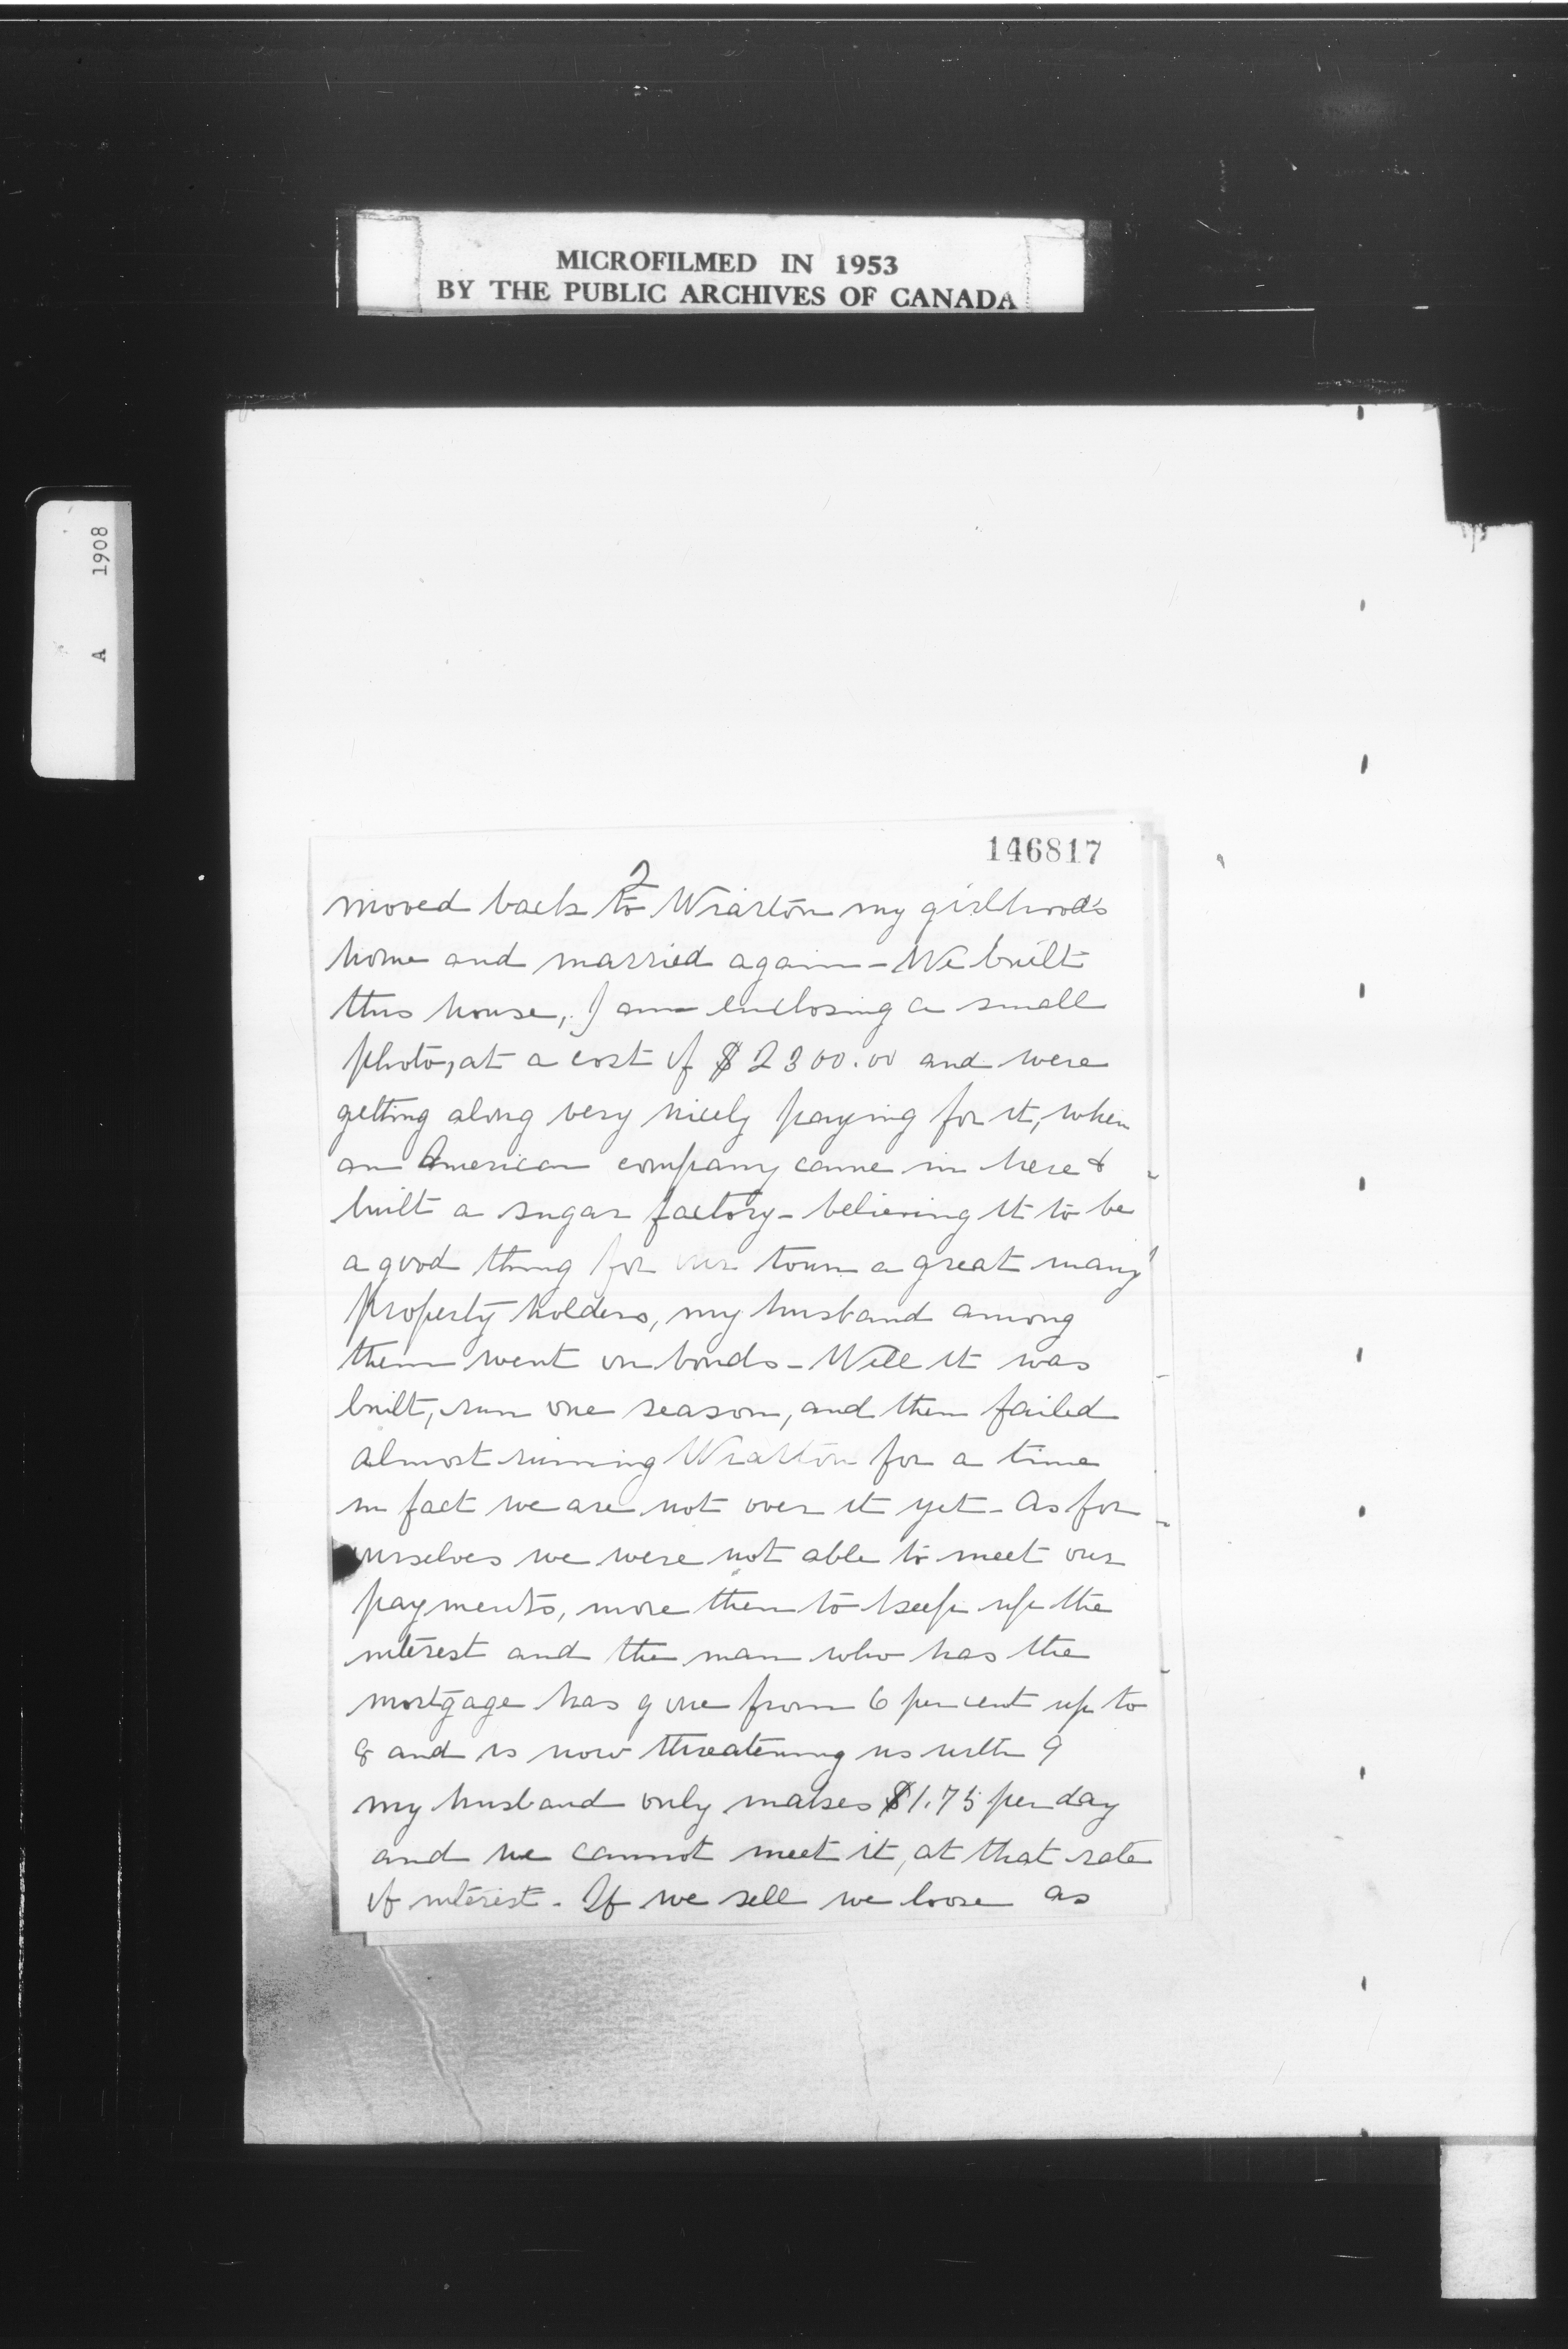 MICROFILMED IN 1953
BY THE PUBLIC ARCHIVES OF CANADA
A 1908
146817
2
moved back to Wiarton my girlhood's
home and married again - We built
this house, I am enclosing a small
photo, at a cost of $2300.00 and were
getting along very nicely paying for it, when
an American company came in here &
built a sugar factory - believing it to be
a good thing for our town a great many
property holders, my husband among
them went on bonds - Well it was
built, run one season, and then failed
almost ruining Wiarton for a time
in fact we are not over it yet - As for
ourselves we were not able to meet our
payments, more then to keep up the
interest and the man who has the
mortgage has gone from 6 per cent up to
8 and is now threatening us with 9
my husband only makes $1.75 per day
and we cannot meet it, at that rate
of interest. If we sell we loose as